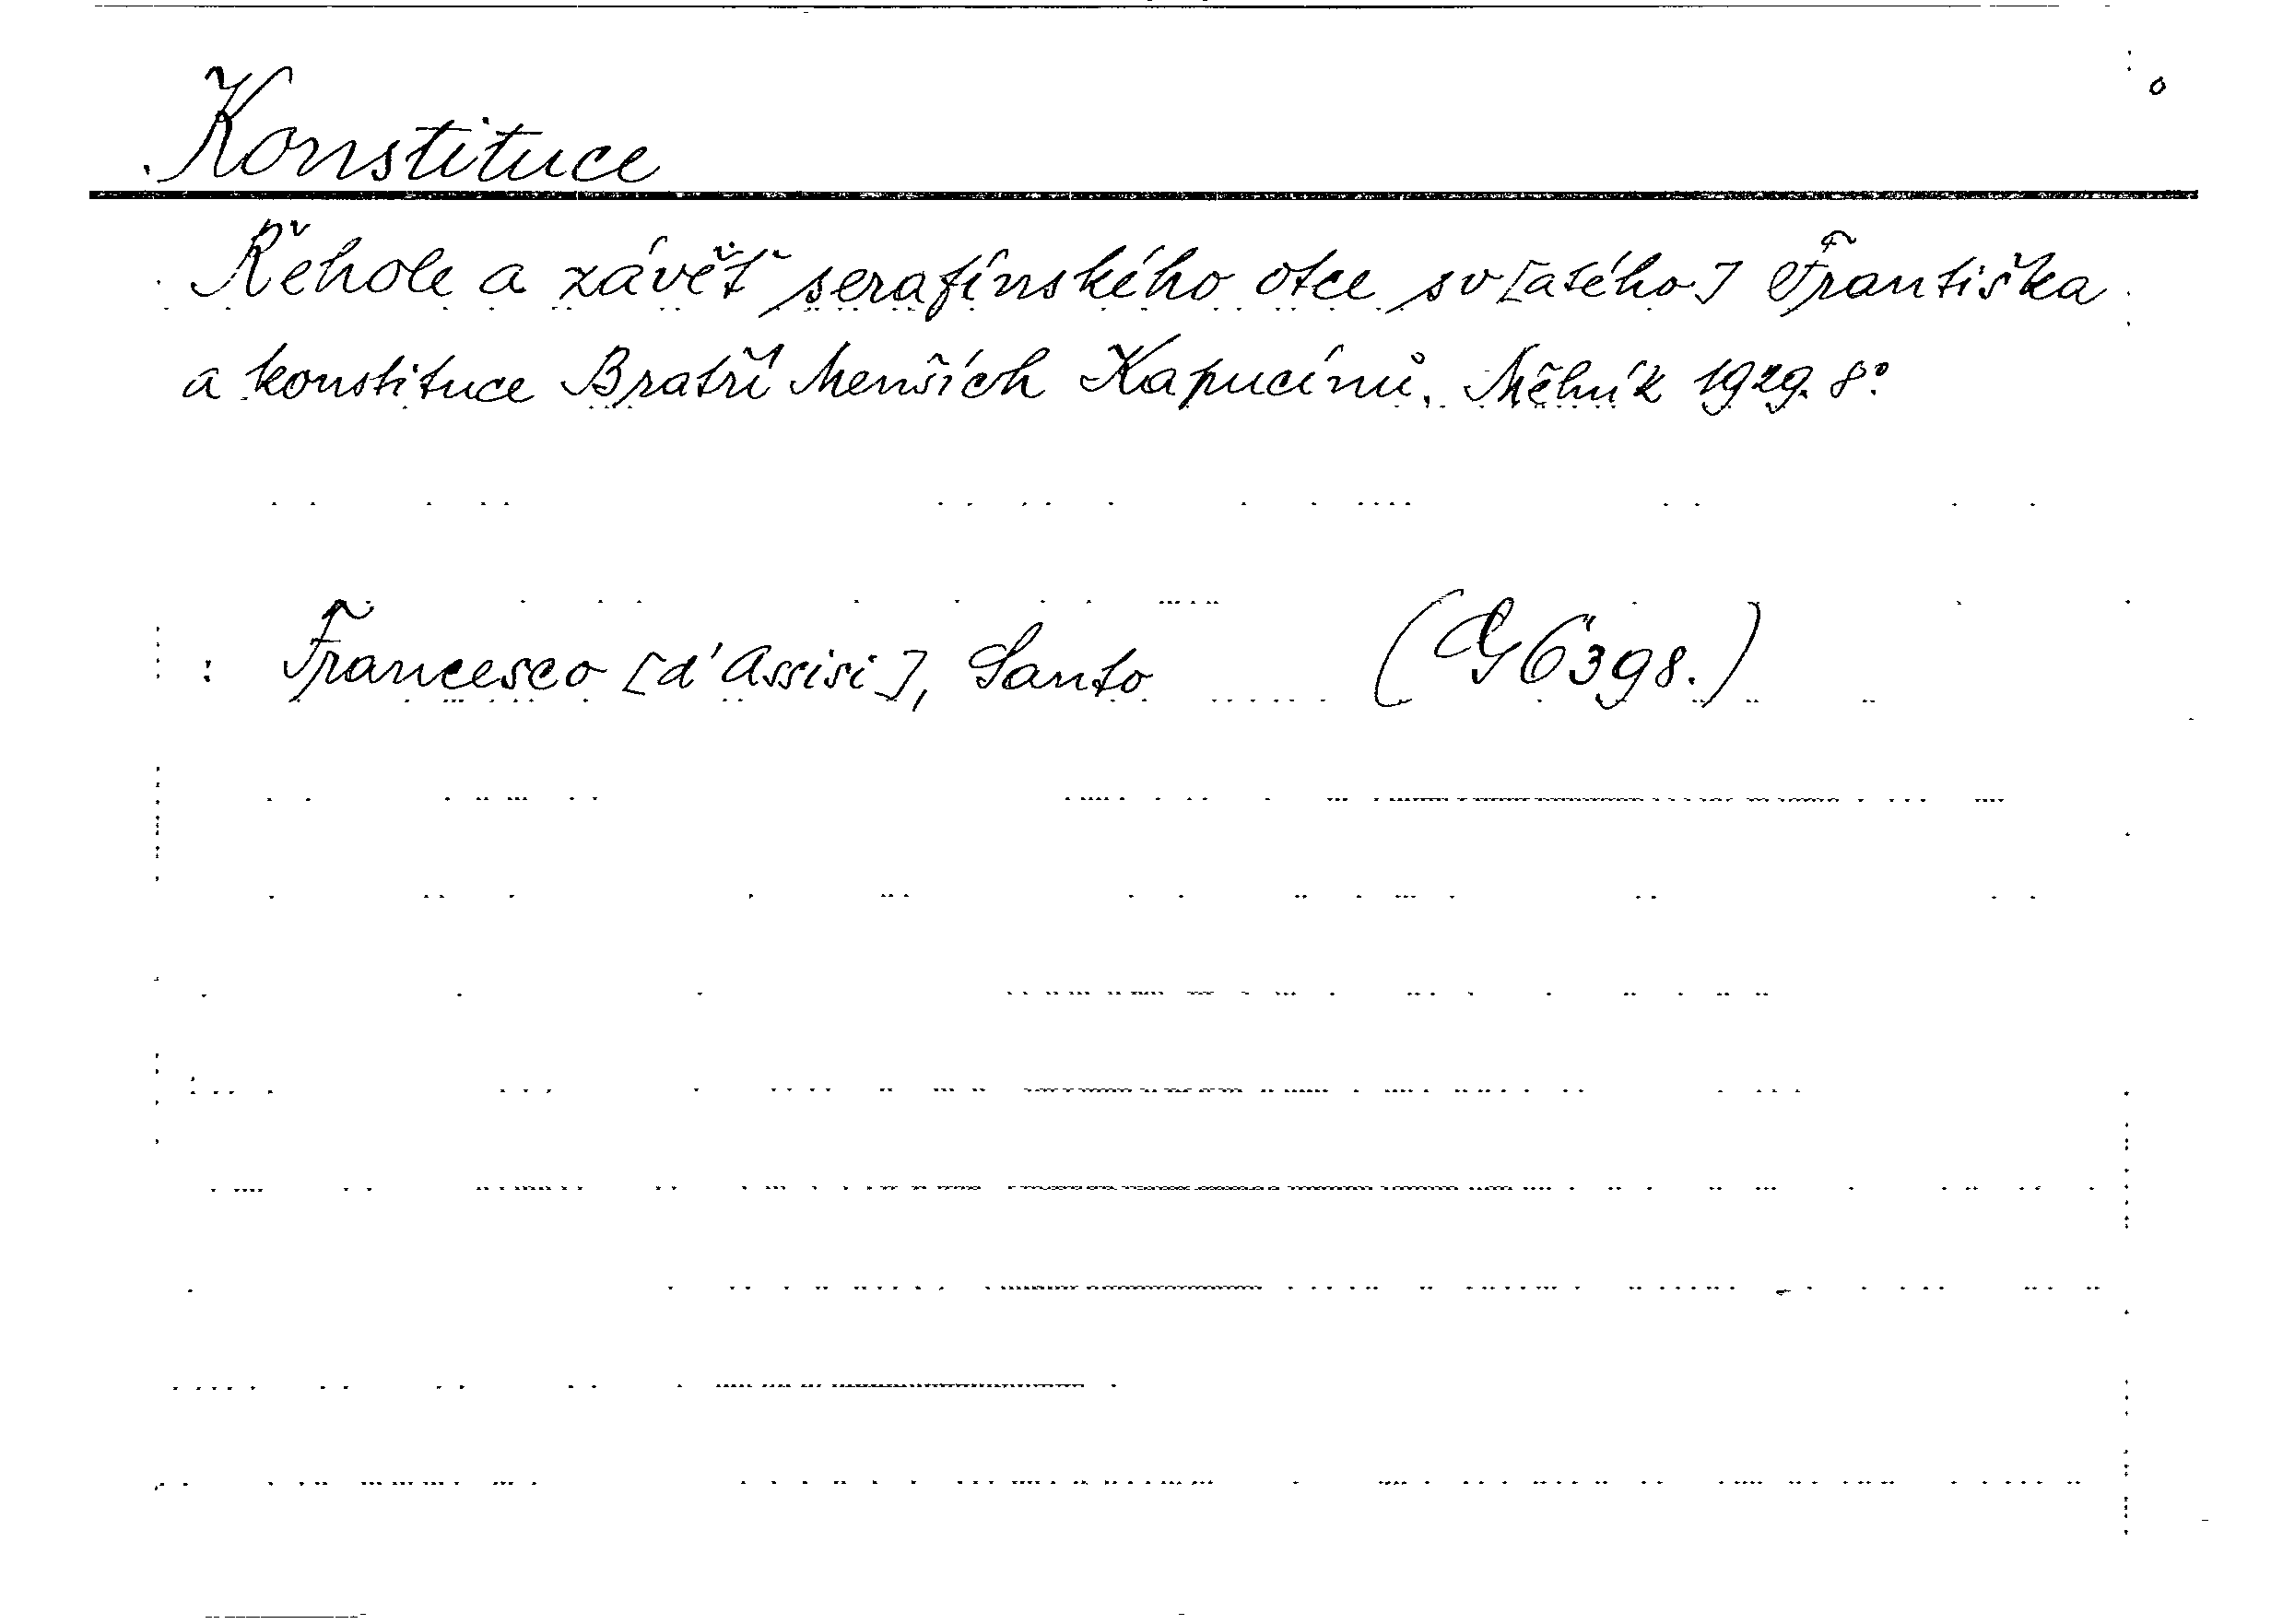 Konstituce
Řehole a závěť serafínského otce sv[atého] Františka
a konstituce Bratří Menších Kapucínů. Mělník 1929. 8°
: Francesco [d'Assisi], Santo (G 6398.)